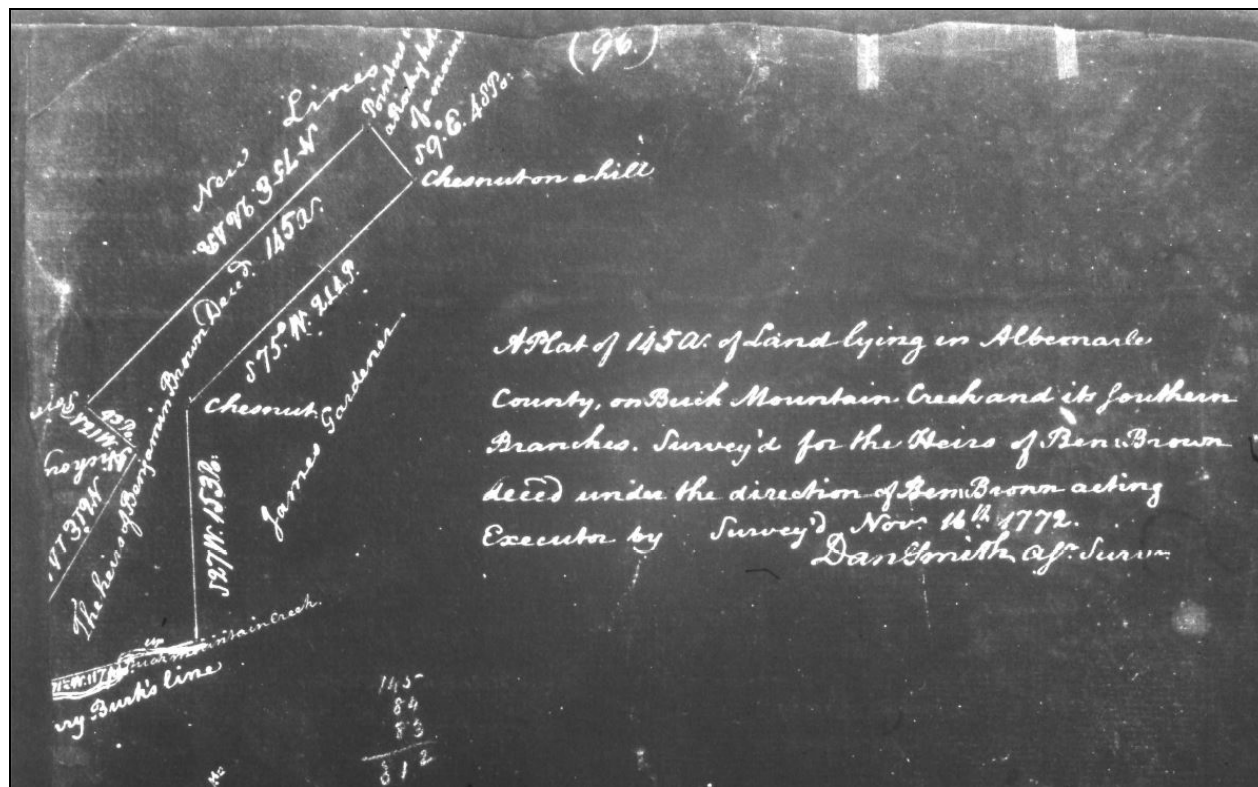 (96.)
New Lines
Pointers
a Rocky
of a mount
S 9. E. 48 Po:
Chesnut on a hill
N 75 E.
The heirs of Benjamin Brown Decd. 145 a.
S 75. W. 214 P.
Chesnut.
James Gardener.
Pine
S 27 W. 153 P.
up
Mountain Creek.
Burk's line
A Plat of 145 a. of Land lying in Albemarle
County, on Buck Mountain Creek and its Southern
Branches. Survey'd for the Heirs of Ben: Brown
decēd under the direction of Ben: Brown acting
Executor by Survey'd Nov. 16th 1772.
Dan Smith Asr. Survr.
145
84
83